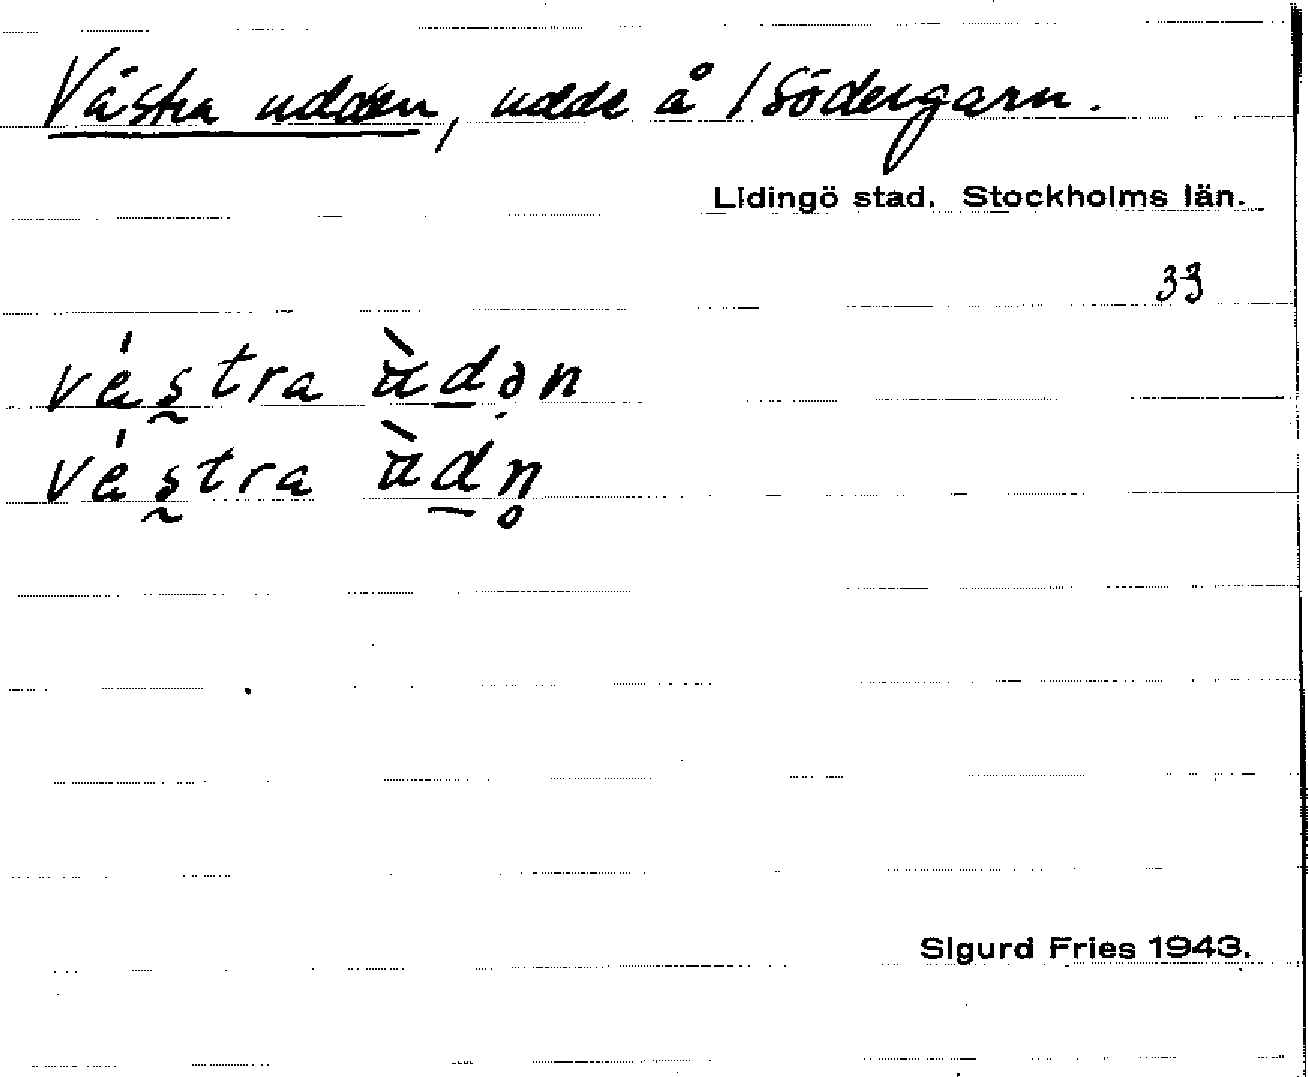 Västra udden, udde å /Södergarn.
Lidingö stad. Stockholms län.
33
vés̰tra ùd̲ə̣n
vés̰tra ùd̲n̥
Sigurd Fries 1943.